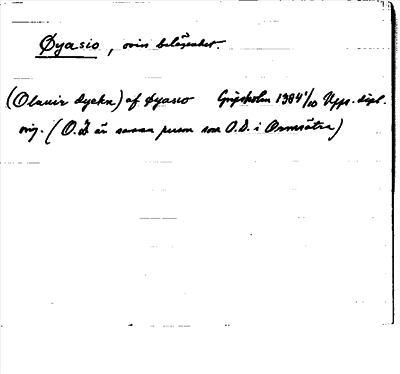 Øyasio, oviss belägenhet.
(Olauir dyekn) af Øyasio Gripsholm 1384 1/10 Upps. dipl.
orig. (O.D. är samma person som O.D. i Ormsätra)